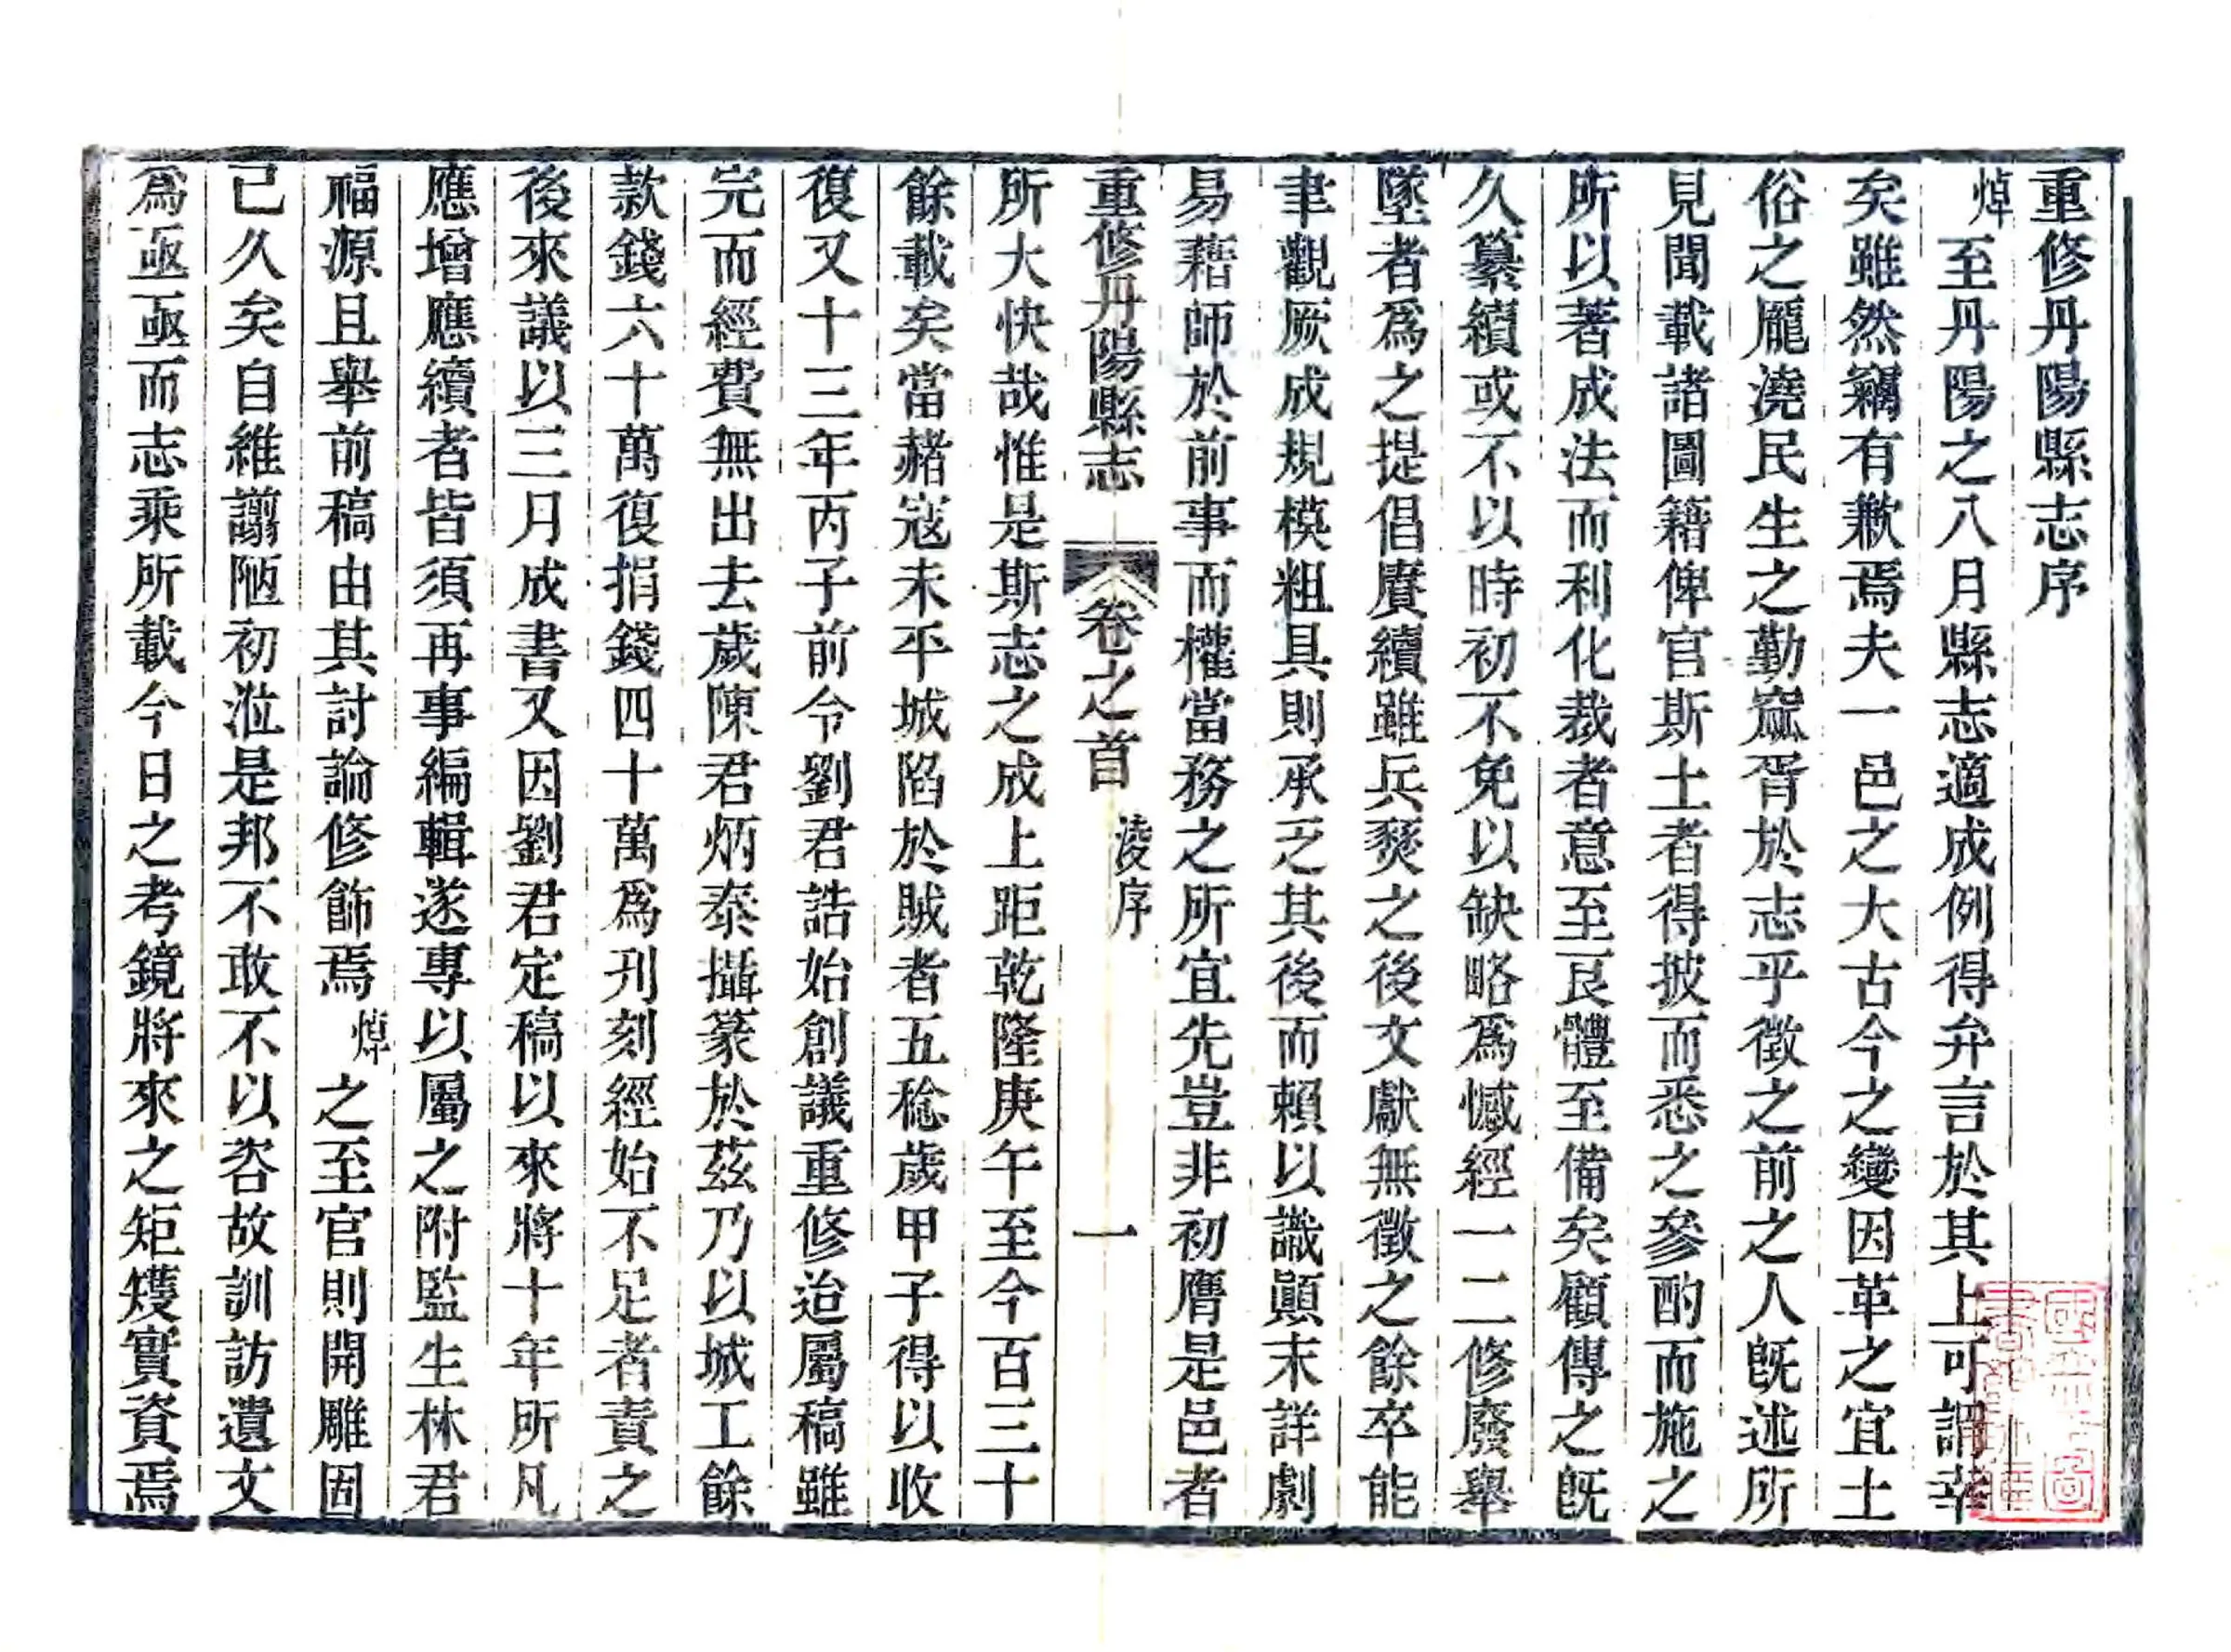 重修丹陽縣志序
焯至丹陽之八月縣志適成例得弁言於其上可謂幸
矣雖然竊有歉焉夫一邑之大古今之變因革之宜土
俗之厖澆民生之勤窳胥於志乎徵之前之人旣述所
見聞載諸圖籍俾官斯土者得披而悉之參酌而施之
所以著成法而利化裁者意至良體至備矣顧傳之旣
久纂續或不以時初不免以缺略爲憾經一二修廢舉
墜者爲之提倡賡續雖兵燹之後文獻無徵之餘卒能
聿觀厥成規模粗具則承乏其後而賴以識顚末詳劇
易藉師於前事而權當務之所宜先豈非初膺是邑者
重修丹陽縣志 卷之首 淩序 一
所大快哉惟是斯志之成上距乾隆庚午至今百三十
餘載矣當赭寇未平城陷於賊者五稔歲甲子得以收
復又十三年丙子前令劉君誥始創議重修迨屬稿雖
完而經費無出去歲陳君炳泰攝篆於茲乃以城工餘
款錢六十萬復捐錢四十萬爲刋刻經始不足者責之
後來議以三月成書又因劉君定稿以來將十年所凡
應增應續者皆須再事編輯遂專以屬之附監生林君
福源且舉前稿由其討論修飾焉焯之至官則開雕固
已久矣自維謭陋初涖是邦不敢不以咨故訓訪遺文
爲亟亟而志乘所載今日之考鏡將來之矩矱實資焉